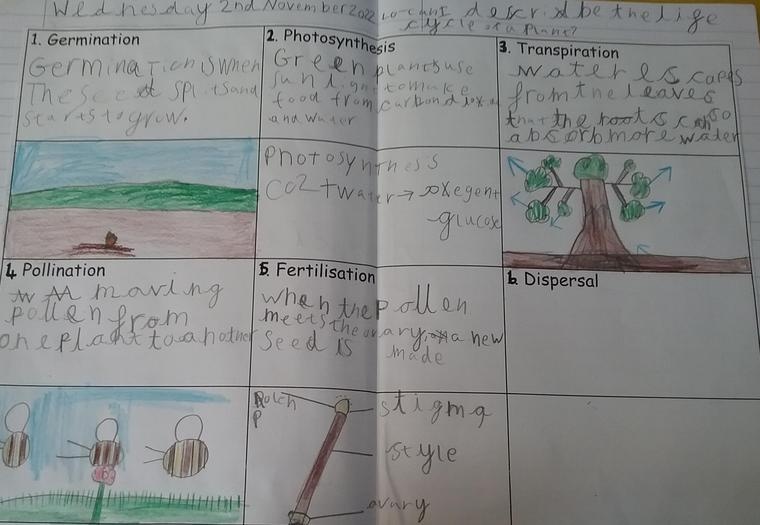 Wednesday 2nd November 2022 LO-Can I describe the life
cycle of a plant?
1. Germination
Germination is when
The seed splits and
starts to grow.
2. Photosynthesis
Green plants use
sunlight to make
food from carbon dioxide
and water
3. Transpiration
water escapes
from the leaves
that the roots can so
absorb more water
Photosynthesis
CO2+water→oxegen+
glucose
4. Pollination
moving
pollen from
one plant to another
5. Fertilisation
when the pollen
meets the ovary, a new
seed is made
6. Dispersal
stigma
style
ovary